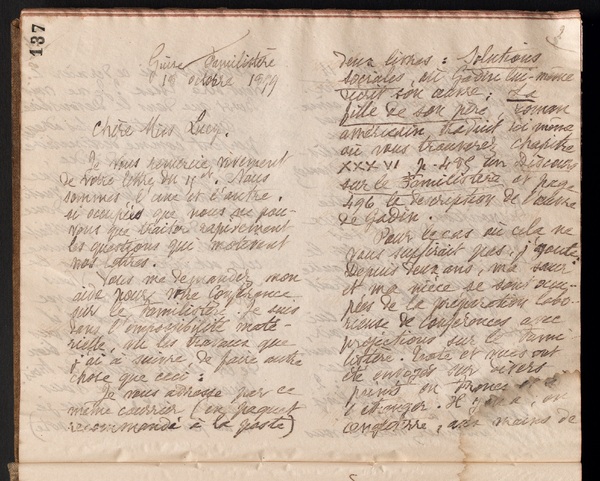 137
Guise Familistère
19 octobre 1899
Chère Miss Lucy,
Je vous remercie vivement
de votre lettre du 15ct. Nous
sommes l'une et l'autre,
si occupées que nous ne pou-
vons que traiter rapidement
les questions qui motivent
nos lettres.
Vous me demandez mon
aide pour votre Conférence
sur le Familistère. Je suis
dans l'impossibilité maté-
rielle, vu les travaux que
j'ai à suivre, de faire autre
chose que ceci :
Je vous adresse par ce
même courrier (en paquet
recommandé à la poste)
deux livres : Solutions
sociales, où Godin lui-même
décrit son œuvre ; La
fille de son père, roman
américain traduit ici même
où vous trouverez chapitre
XXXVI p. 485 un Discours
sur le Familistère et page
496 la description de l'œuvre
de Godin.
Pour le cas où cela ne
vous suffirait pas, j'ajoute :
Depuis deux ans, ma sœur
et ma nièce se sont occu-
pées de la préparation labo-
rieuse de conférences avec
projections sur le Fami-
listère. Texte et vues ont
été envoyés sur divers
points en France et à
l'étranger. Il y en a, en
Angleterre, aux mains de